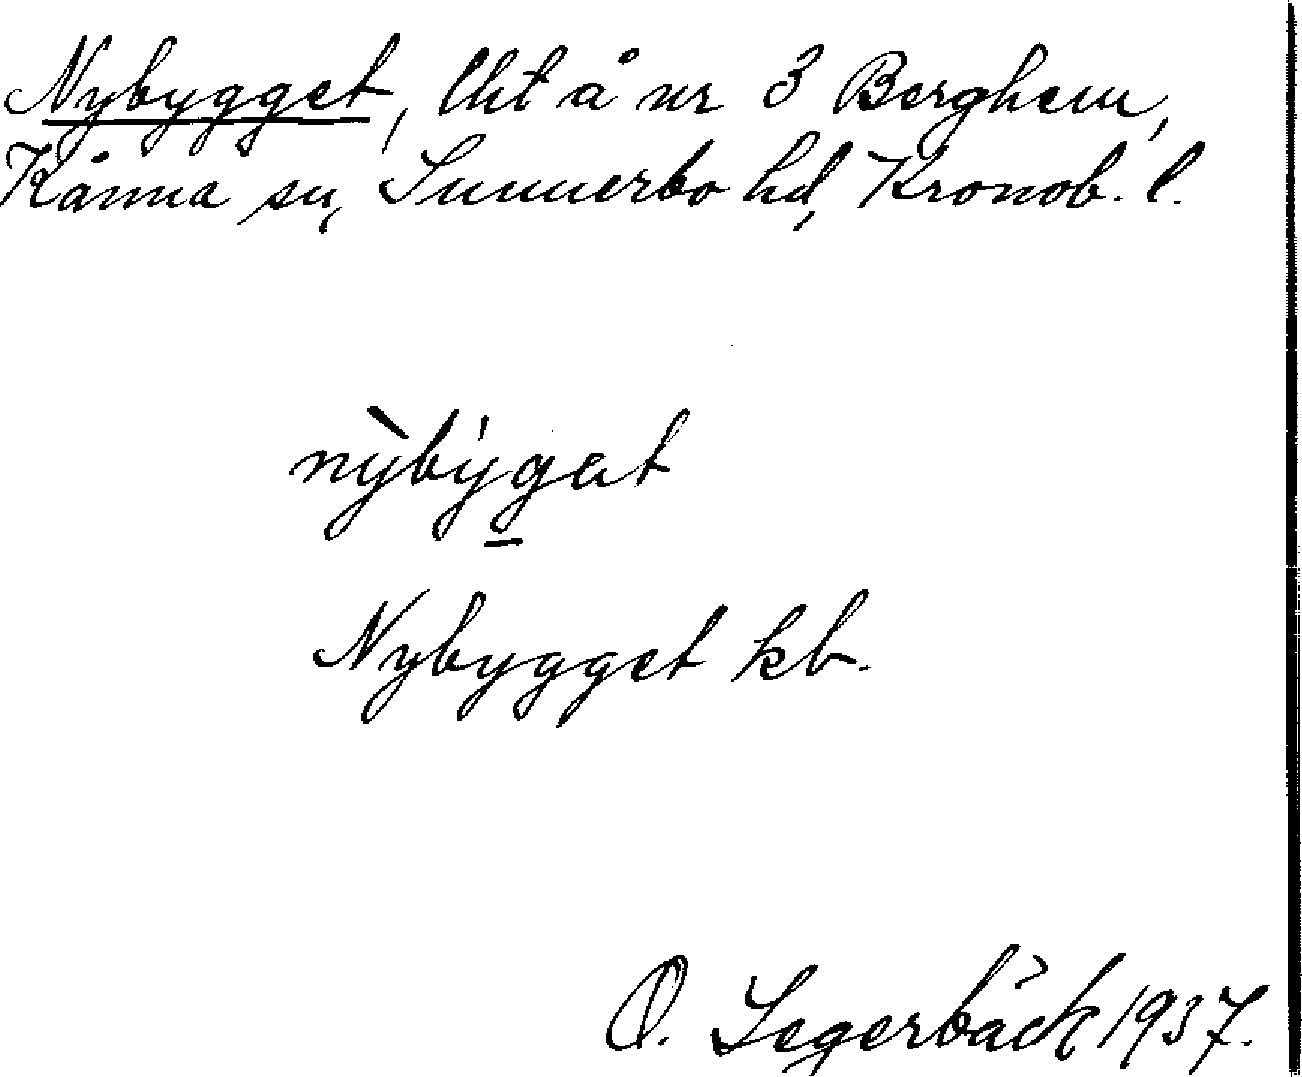 Nybygget, lht å nr 3 Berghem,
Kånna sn, Sunnerbo hd, Kronob. l.
nỳbýg̲at
Nybygget kb.
O. Segerbäck 1937.